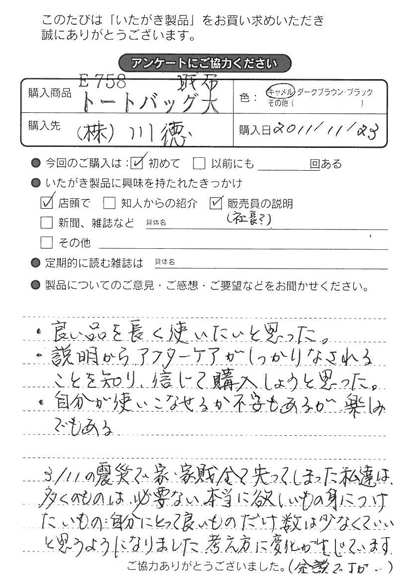 このたびは「いたがき製品」をお買い求めいただき
誠にありがとうございます。
アンケートにご協力ください
E758 財布
購入商品 トートバッグ大
色： キャメル・ダークブラウン・ブラック
その他（ ）
購入先 (株)川徳
購入日 2011/11/23
● 今回のご購入は： ☑ 初めて □ 以前にも 回ある
● いたがき製品に興味を持たれたきっかけ
☑ 店頭で □ 知人からの紹介 ☑ 販売員の説明
(社長?)
□ 新聞、雑誌など 具体名
□ その他
● 定期的に読む雑誌は 具体名
● 製品についてのご意見・ご感想・ご要望などをお聞かせください。
・良い品を長く使いたいと思った。
・説明からアフターケアがしっかりなされる
ことを知り、信じて購入しようと思った。
・自分が使いこなせるか不安もあるが楽しみ
でもある
3/11の震災で家・家財全て失ってしまった私達は、
多くのものは必要ない本当に欲しいもの身につけ
たいもの・自分にとって良いものだけ数は少なくていい
と思うようになりました 考え方に変化が生じています
ご協力ありがとうございました。